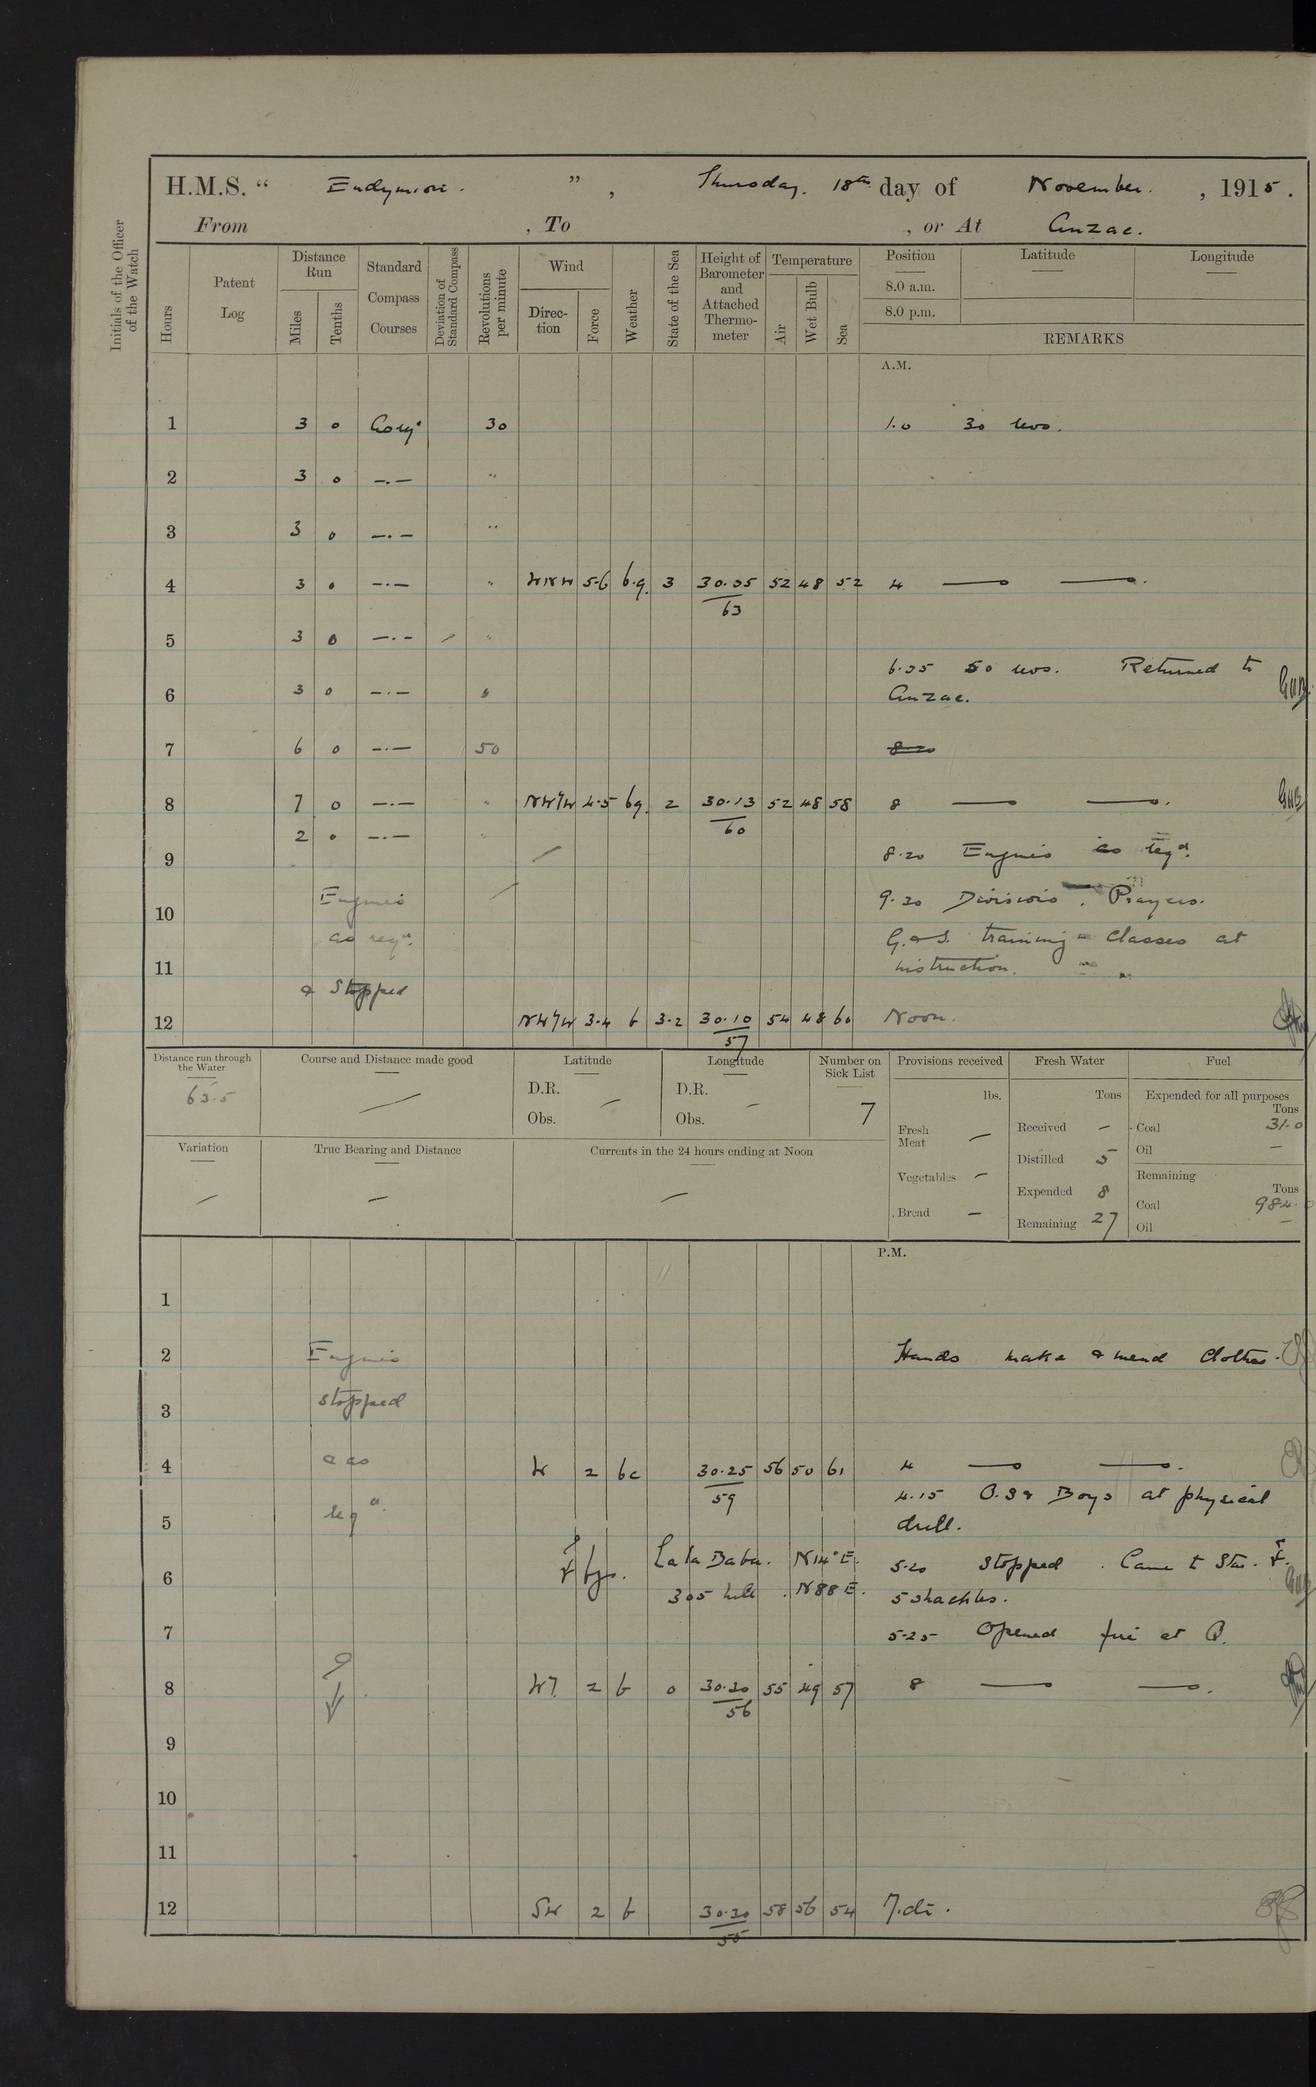 H.M.S. " Endymion. ", Thursday. 18th day of November. , 1915.
From , To , or At Anzac.
Initials of the Officer of the Watch
Hours
Patent Log
Distance Run
Miles
Tenths
Standard Compass Courses
Deviation of Standard Compass
Revolutions per minute
Wind
Direction
Force
Weather
State of the Sea
Height of Barometer and Attached Thermometer
Temperature
Air
Wet Bulb
Sea
Position
Latitude
Longitude
8.0 a.m.
8.0 p.m.
REMARKS
A.M.
1 3 0 30 1.0 30 revs.
2 3 0 —.— "
3 3 0 —.— "
4 3 0 —.— " WNW 5-6 b.q. 3 30.05 52 48 52 4 —— ——.
63
5 3 0 —.— "
6.35 50 revs. Returned to
6 3 0 —.— " Anzac.
7 6 0 —.— 50 8.20
8 7 0 —.— " NW/W 4.5 bq. 2 30.13 52 48 58 8 —— ——.
60
2 0 —.— "
9 8.20 Engines as reqd.
10 Engines 9.30 Divisions. Prayers.
as reqd. G. & S. training = Classes at
11 instruction.
& Stopped
12 NW/W 3.4 b 3.2 30.10 54 48 60 Noon.
57
Distance run through the Water
63.5
Course and Distance made good
Latitude
D.R.
Obs.
Longitude
D.R.
Obs.
Number on Sick List
7
Provisions received
lbs.
Fresh Meat —
Vegetables —
Bread —
Fresh Water
Tons
Received —
Distilled 5
Expended 8
Remaining 27
Fuel
Expended for all purposes
Tons
Coal 31.0
Oil —
Remaining
Tons
Coal 984.
Oil —
Variation
True Bearing and Distance
Currents in the 24 hours ending at Noon
P.M.
1
2 Engines Hands make & mend clothes.
3 stopped
4 & as W 2 bc 30.25 56 50 61 4 —— ——.
59
4.15 O.S & Boys at physical
5 reqd drill.
bgs. Lala Baba. N14°E. 5.20 Stopped. Came to Star.
6 305 hill. N88E. 5 shackles.
7 5.25 Opened fire at Q.
8 2 b 0 30.30 55 49 57 8 —— ——.
56
9
10
11
12 SW 2 b 30.30 58 56 54